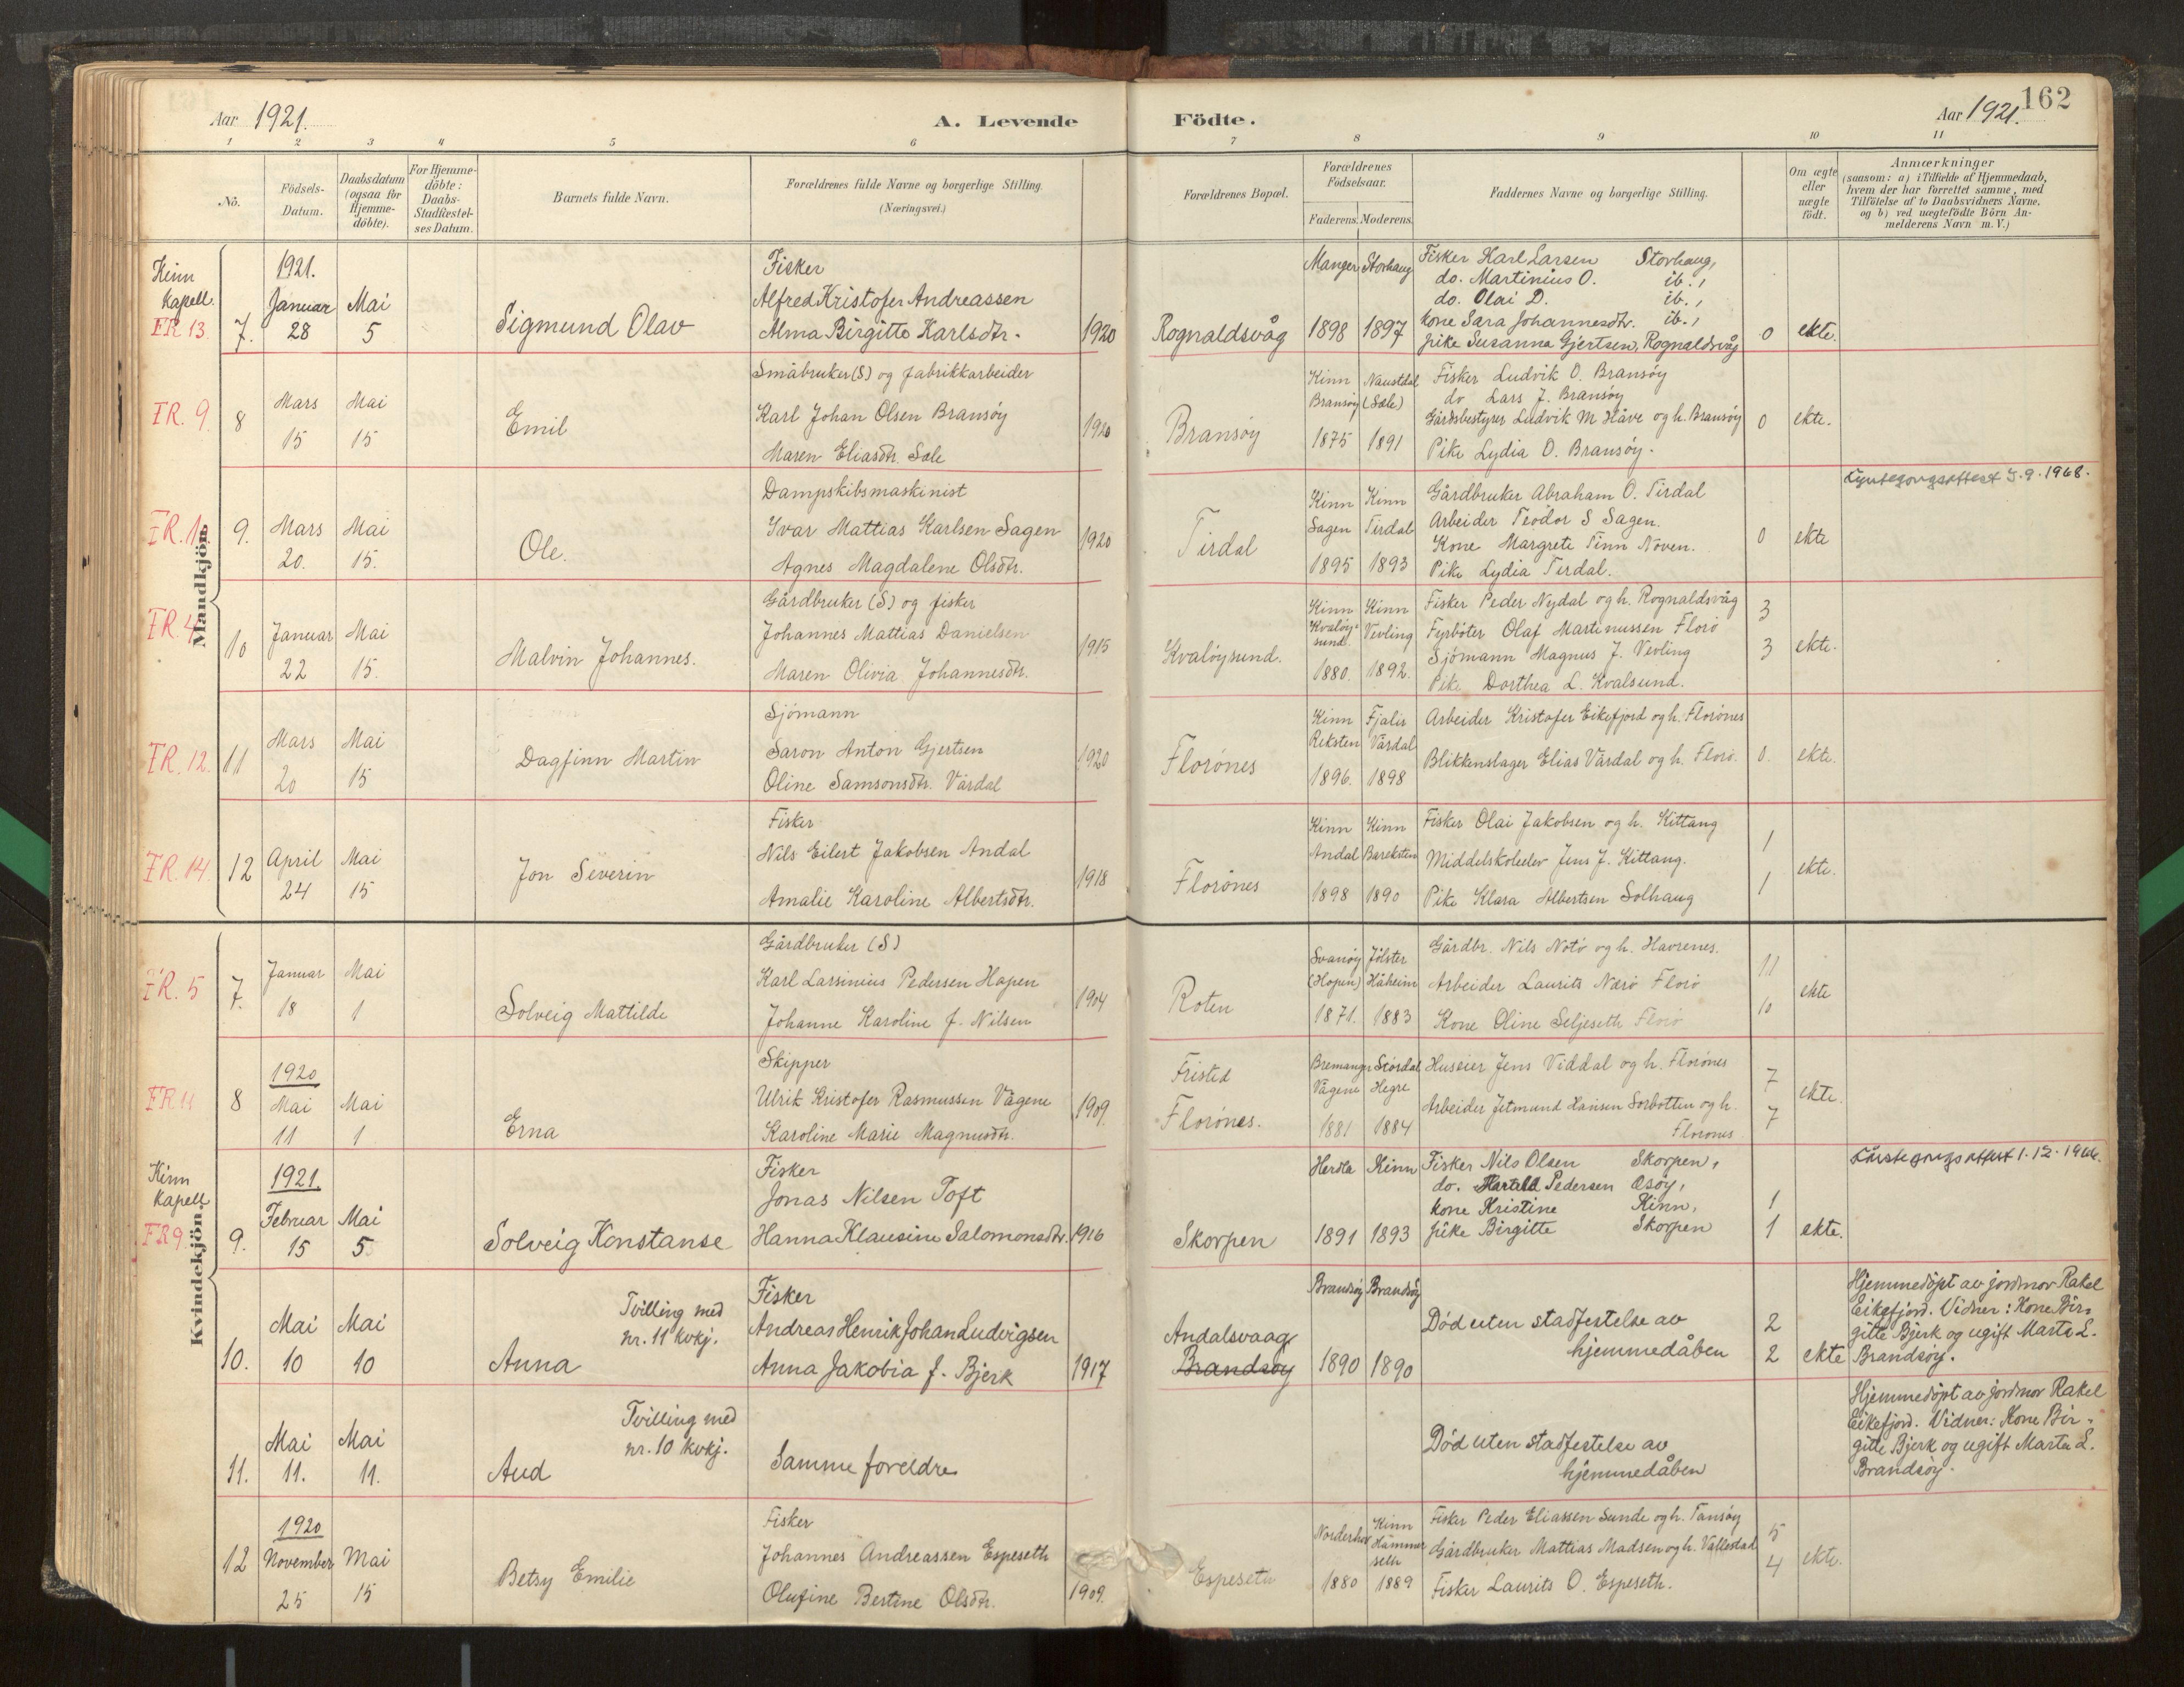 Aar 1921.
A. Levende
Födte.
Aar 1921.
162
1 2 3 4 5 6 7 8 9 10 11
No.
Födsels-
Datum.
Daabsdatum
(ogsaa for
Hjemme-
döbte).
For Hjemme-
döbte:
Daabs-
Stadfæstel-
ses Datum.
Barnets fulde Navn.
Forældrenes fulde Navne og borgerlige Stilling.
(Næringsvei.)
Forældrenes Bopæl.
Forældrenes
Födselsaar.
Faderens. Moderens.
Faddernes Navne og borgerlige Stilling.
Om ægte
eller
uægte
födt.
Anmærkninger
(saasom: a) i Tilfælde af Hjemmedaab,
hvem der har forrettet samme, med
Tilföielse af to Daabsvidners Navne,
og b) ved uægtefödte Börn An-
melderens Navn m. V.)
Mandkjön
Kinn
Kapell.
FR 13.
7.
1921.
Januar
28
Mai
5
Sigmund Olav
Fisker
Alfred Kristofer Andreassen
Alma Birgitte Karlsdtr.
1920
Rognaldsvåg
Manger
1898
Storhaug
1897
Fisker Karl Larsen Storhaug,
do. Martinius O. ib.,
do. Olai D. ib.,
kone Sara Johannesdtr. ib.,
pike Susanna Gjertsen, Rognaldsvåg
0
ekte.
FR. 9.
8
Mars
15
Mai
15
Emil
Småbruker (S) og fabrikkarbeider
Karl Johan Olsen Bransöy
Maren Eliasdtr. Sæle
1920
Bransöy
Kinn
Bransöy
1875
Naustdal
(Sæle)
1891
Fisker Ludvik O. Bransöy
do Lars J. Bransöy
Gårdsbestyrer Ludvik M. Håve og h. Bransöy
Pike Lydia O. Bransöy.
0
ekte.
9.
Mars
20.
Mai
15.
Ole.
Dampskibsmaskinist
Ivar Mattias Karlsen Sagen
Agnes Magdalene Olsdtr.
1920
Tirdal
Kinn
Sagen
1895
Kinn
Tirdal
1893
Gårdbruker Abraham O. Tirdal
Arbeider Teodor S Sagen.
Kone Margrete Tinn Noven.
Pike Lydia Tirdal.
0
ekte
5.9.1968.
FR. 4
10
Januar
22
Mai
15.
Malvin Johannes.
Gårdbruker (S) og fisker
Johannes Mattias Danielsen
Maren Olivia Johannesdtr.
1915
Kvalöysund.
Kinn
Kvalöy-
sund.
1880.
Kinn
Vevling
1892.
Fisker Peder Nydal og h. Rognaldsvåg
Fyrböter Olaf Martinussen Florö
Sjömann Magnus J. Vevling
Pike Dorthea L. Kvalsund.
3
3
ekte.
FR. 12.
11
Mars
20
Mai
15
Dagfinn Martin
Sjömann
Saron Anton Gjertsen
Oline Samsonsdtr. Vårdal
1920
Florönes
Kinn
Reksten
1896.
Fjaler
Vårdal
1898
Arbeider Kristofer Eikefjord og h. Florönes
Blikkenslager Elias Vårdal og h. Florö.
0.
ekte.
FR. 14.
12
April
24
Mai
15
Jon Severin
Fisker
Nils Eilert Jakobsen Andal
Amalie Karoline Albertsdtr.
1918
Florönes
Kinn
Andal
1898
Kinn
Bareksten
1890
Fisker Olai Jakobsen og h. Kittang
Middelskoleelev Jens J. Kittang.
Pike Klara Albertsen Solhaug
1
1
ekte.
Kvindekjön.
FR. 5
7.
Januar
18
Mai
1
Solveig Mattilde
Gårdbruker (S)
Karl Larsinius Pedersen Hopen
Johanne Karoline f. Nilsen
1904
Roten
Svanöy
(Hopen)
1871.
Jölster
Håheim
1883
Gårdbr. Nils Notö og h. Havrenes.
Arbeider Laurits Nærö Florö
Kone Oline Seljeseth Florö
11
10
ekte
FR 11
8
1920
Mai
11
Mai
1
Erna
Skipper
Ulrik Kristofer Rasmussen Vågene
Karoline Marie Magnusdtr.
1909.
Fristed
Florönes.
Bremanger
Vågene
1881
Stördal
Hegre
1884
Huseier Jens Viddal og h. Florönes
Arbeider Jetmund Hansen Sorbotten og h.
Florönes
7
7
ekte.
Kinn
Kapell
FR 9.
9.
1921.
Februar
15
Mai
5
Solveig Konstanse
Fisker
Jonas Nilsen Toft
Hanna Klausine Salomonsdtr.
1916
Skorpen
Herdla
1891
Kinn
1893
Fisker Nils Olsen Skorpen,
do. Harald Pedersen Osöy,
kone Kristine Kinn,
pike Birgitte Skorpen
1
1
ekte.
1.12.1966.
10.
Mai
10
Mai
10
Anna
Tvilling med
nr. 11 kvkj.
Fisker
Andreas Henrik Johan Ludvigsen
Anna Jakobia f. Bjerk
1917
Andalsvaag
Brandsöy
Brandsöy
1890
Brandsöy
1890
Död uten stadfestelse av
hjemmedåben
2
2
ekte
Hjemmedöpt av jordmor Rakel
Eikefjord. Vidner: Kone Bir-
gitte Bjerk og ugift Marta L.
Brandsöy.
11.
Mai
11.
Mai
11.
Aud
Tvilling med
nr. 10 kvkj.
Samme foreldre
Död uten stadfestelse av
hjemmedåben
Hjemmedöpt av jordmor Rakel
Eikefjord. Vidner: Kone Bir-
gitte Bjerk og ugift Marta L.
Brandsöy.
12
1920
November
25
Mai
15
Betsy Emilie
Fisker
Johannes Andreassen Espeseth
Olufine Bertine Olsdtr.
1909.
Espeseth
Norderhov
1880
Kinn
Hammer
seth
1889
Fisker Peder Eliassen Sunde og h. Tansöy
Gårdbruker Mattias Madsen og h. Vallestad
Fisker Laurits O. Espeseth.
5
4
ekte.